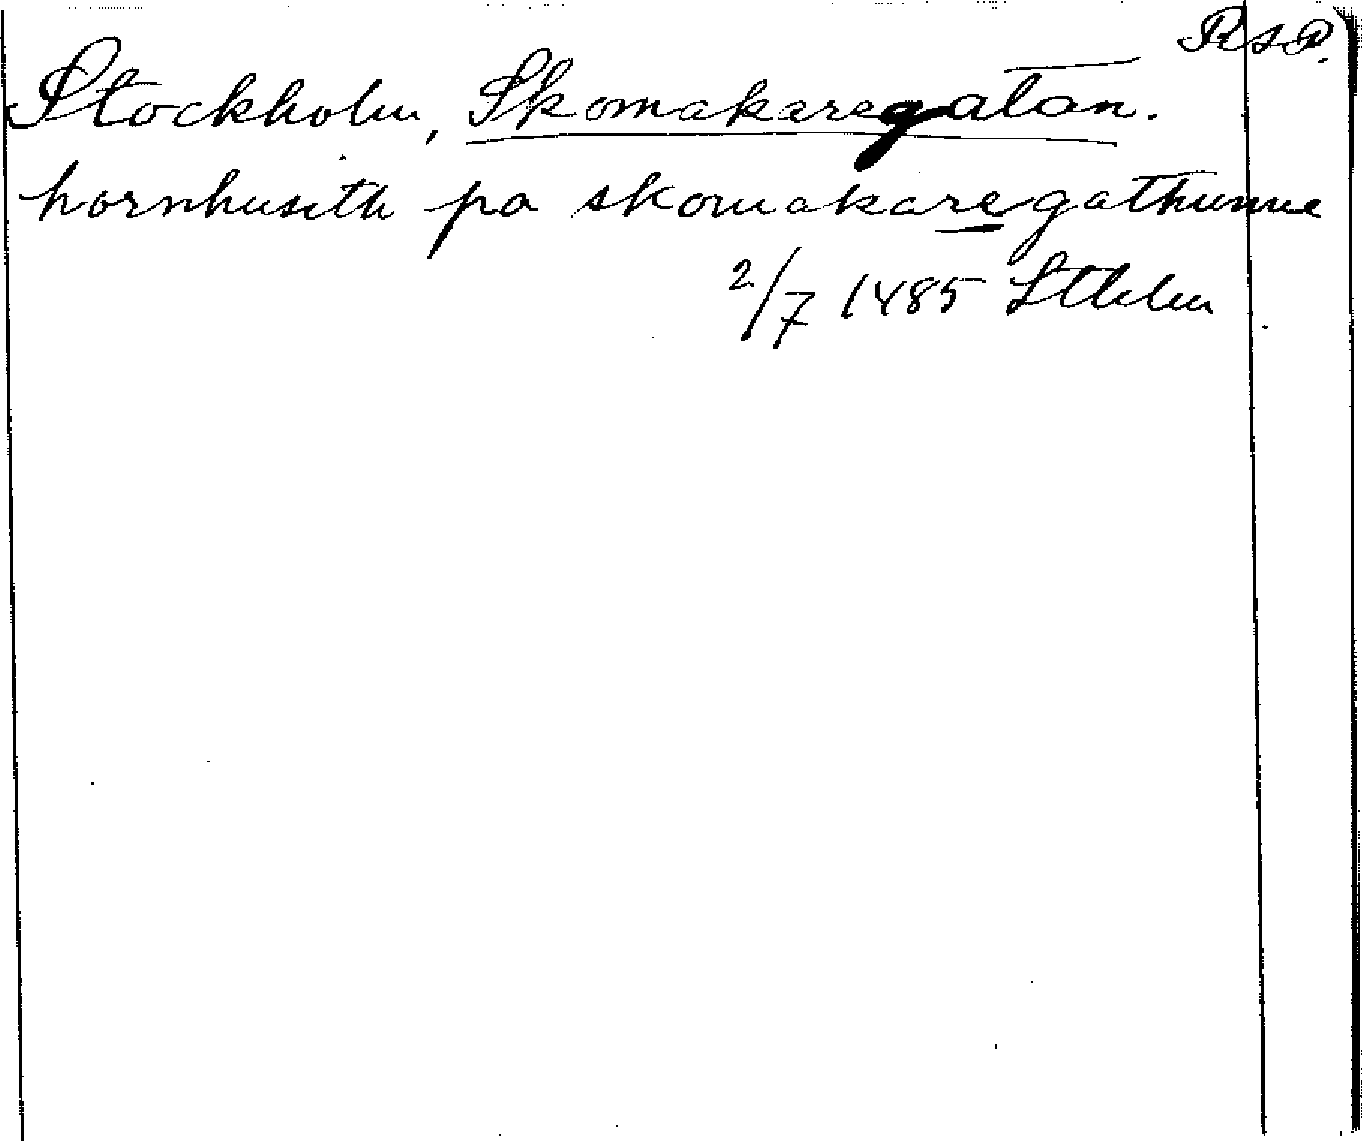 RAP.
Stockholm, Skomakaregatan.
hornhusith pa skomakaregathunne
2/7 1485 Sthlm